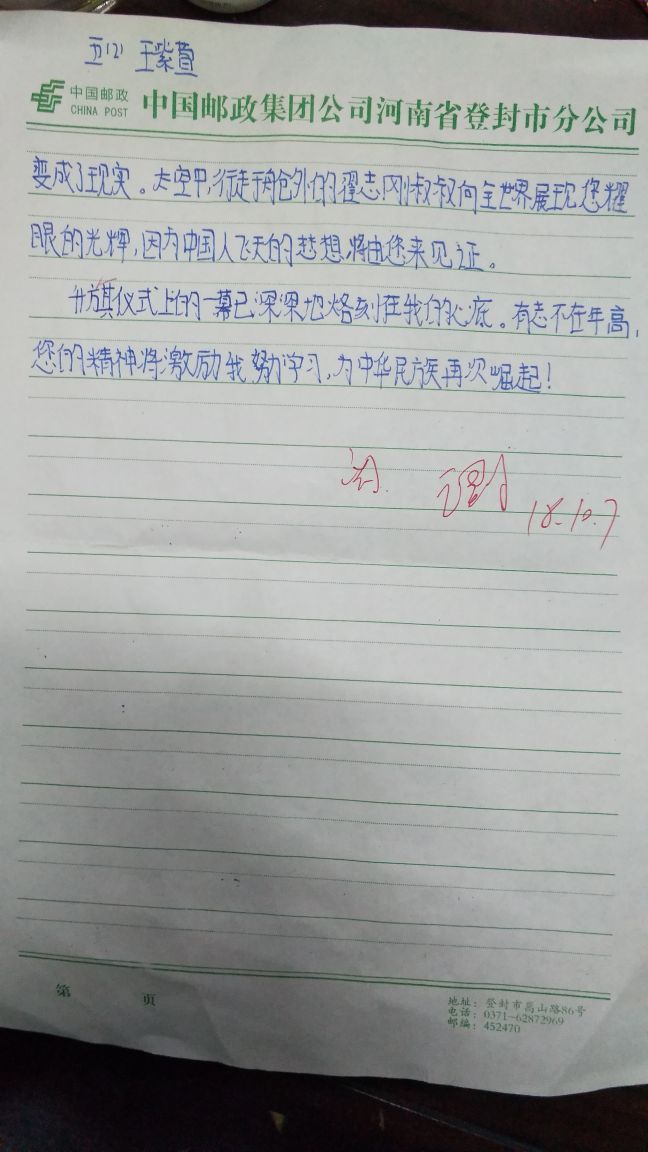 五(2) 王紫萱
中国邮政
CHINA POST
中国邮政集团公司河南省登封市分公司
变成了现实。太空中,行走于舱外的翟志刚叔叔向全世界展现您耀
眼的光辉,因为中国人飞天的梦想将由您来见证。
升旗仪式上的一幕已深深地烙刻在我的心底。有志不在年高,
您的精神将激励我努力学习,为中华民族再次崛起!
18.10.7
第 页
地址:登封市嵩山路86号
电话:0371-62872969
邮编:452470